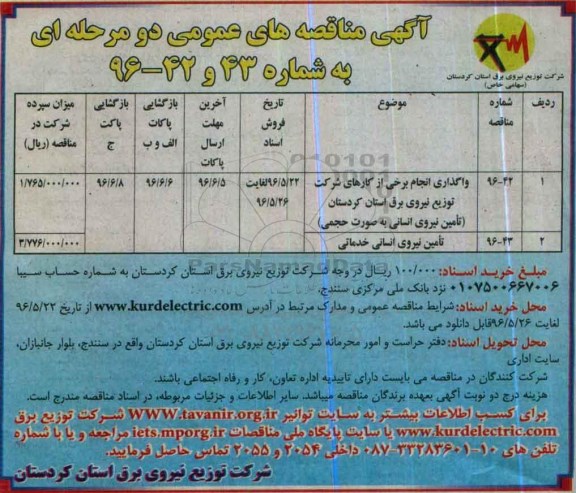 آگهی مناقصه های عمومی دو مرحله ای
به شماره ۴۳ و ۴۲-۹۶
شرکت توزیع نیروی برق استان کردستان
(سهامی خاص)
ردیف
شماره مناقصه
موضوع
تاریخ فروش اسناد
آخرین مهلت ارسال پاکات
بازگشایی پاکات الف و ب
بازگشایی پاکت ج
میزان سپرده شرکت در مناقصه (ریال)
۱
۹۶-۴۲
واگذاری انجام برخی از کارهای شرکت
توزیع نیروی برق استان کردستان
(تأمین نیروی انسانی به صورت حجمی)
۹۶/۵/۲۲لغایت
۹۶/۵/۲۶
۹۶/۶/۵
۹۶/۶/۶
۹۶/۶/۸
۱/۷۶۵/۰۰۰/۰۰۰
۲
۹۶-۴۳
تأمین نیروی انسانی خدماتی
۳/۷۷۶/۰۰۰/۰۰۰
ParsNamadData
مبلغ خرید اسناد: ۱۰۰/۰۰۰ ریال در وجه شرکت توزیع نیروی برق استان کردستان به شماره حساب سیبا
۰۱۰۷۵۰۰۶۶۷۰۰۶ نزد بانک ملی مرکزی سنندج.
محل خرید اسناد: شرایط مناقصه عمومی و مدارک مرتبط در آدرس www.kurdelectric.com از تاریخ ۹۶/۵/۲۲
لغایت ۹۶/۵/۲۶قابل دانلود می باشد.
محل تحویل اسناد: دفتر حراست و امور محرمانه شرکت توزیع نیروی برق استان کردستان واقع در سنندج، بلوار جانبازان،
سایت اداری
شرکت کنندگان در مناقصه می بایست دارای تاییدیه اداره تعاون، کار و رفاه اجتماعی باشند.
هزینه درج دو نوبت آگهی بعهده برندگان مناقصه میباشد. سایر اطلاعات و جزئیات مربوطه، در اسناد مناقصه مندرج است.
برای کسب اطلاعات بیشتر به سایت توانیر WWW.tavanir.org.ir شرکت توزیع برق
www.kurdelectric.com یا سایت پایگاه ملی مناقصات iets.mporg.ir مراجعه و یا با شماره
تلفن های ۱۰-۳۳۲۸۳۶۰۱-۰۸۷ داخلی ۲۰۵۴ و ۲۰۵۵ تماس حاصل فرمایید.
شرکت توزیع نیروی برق استان کردستان